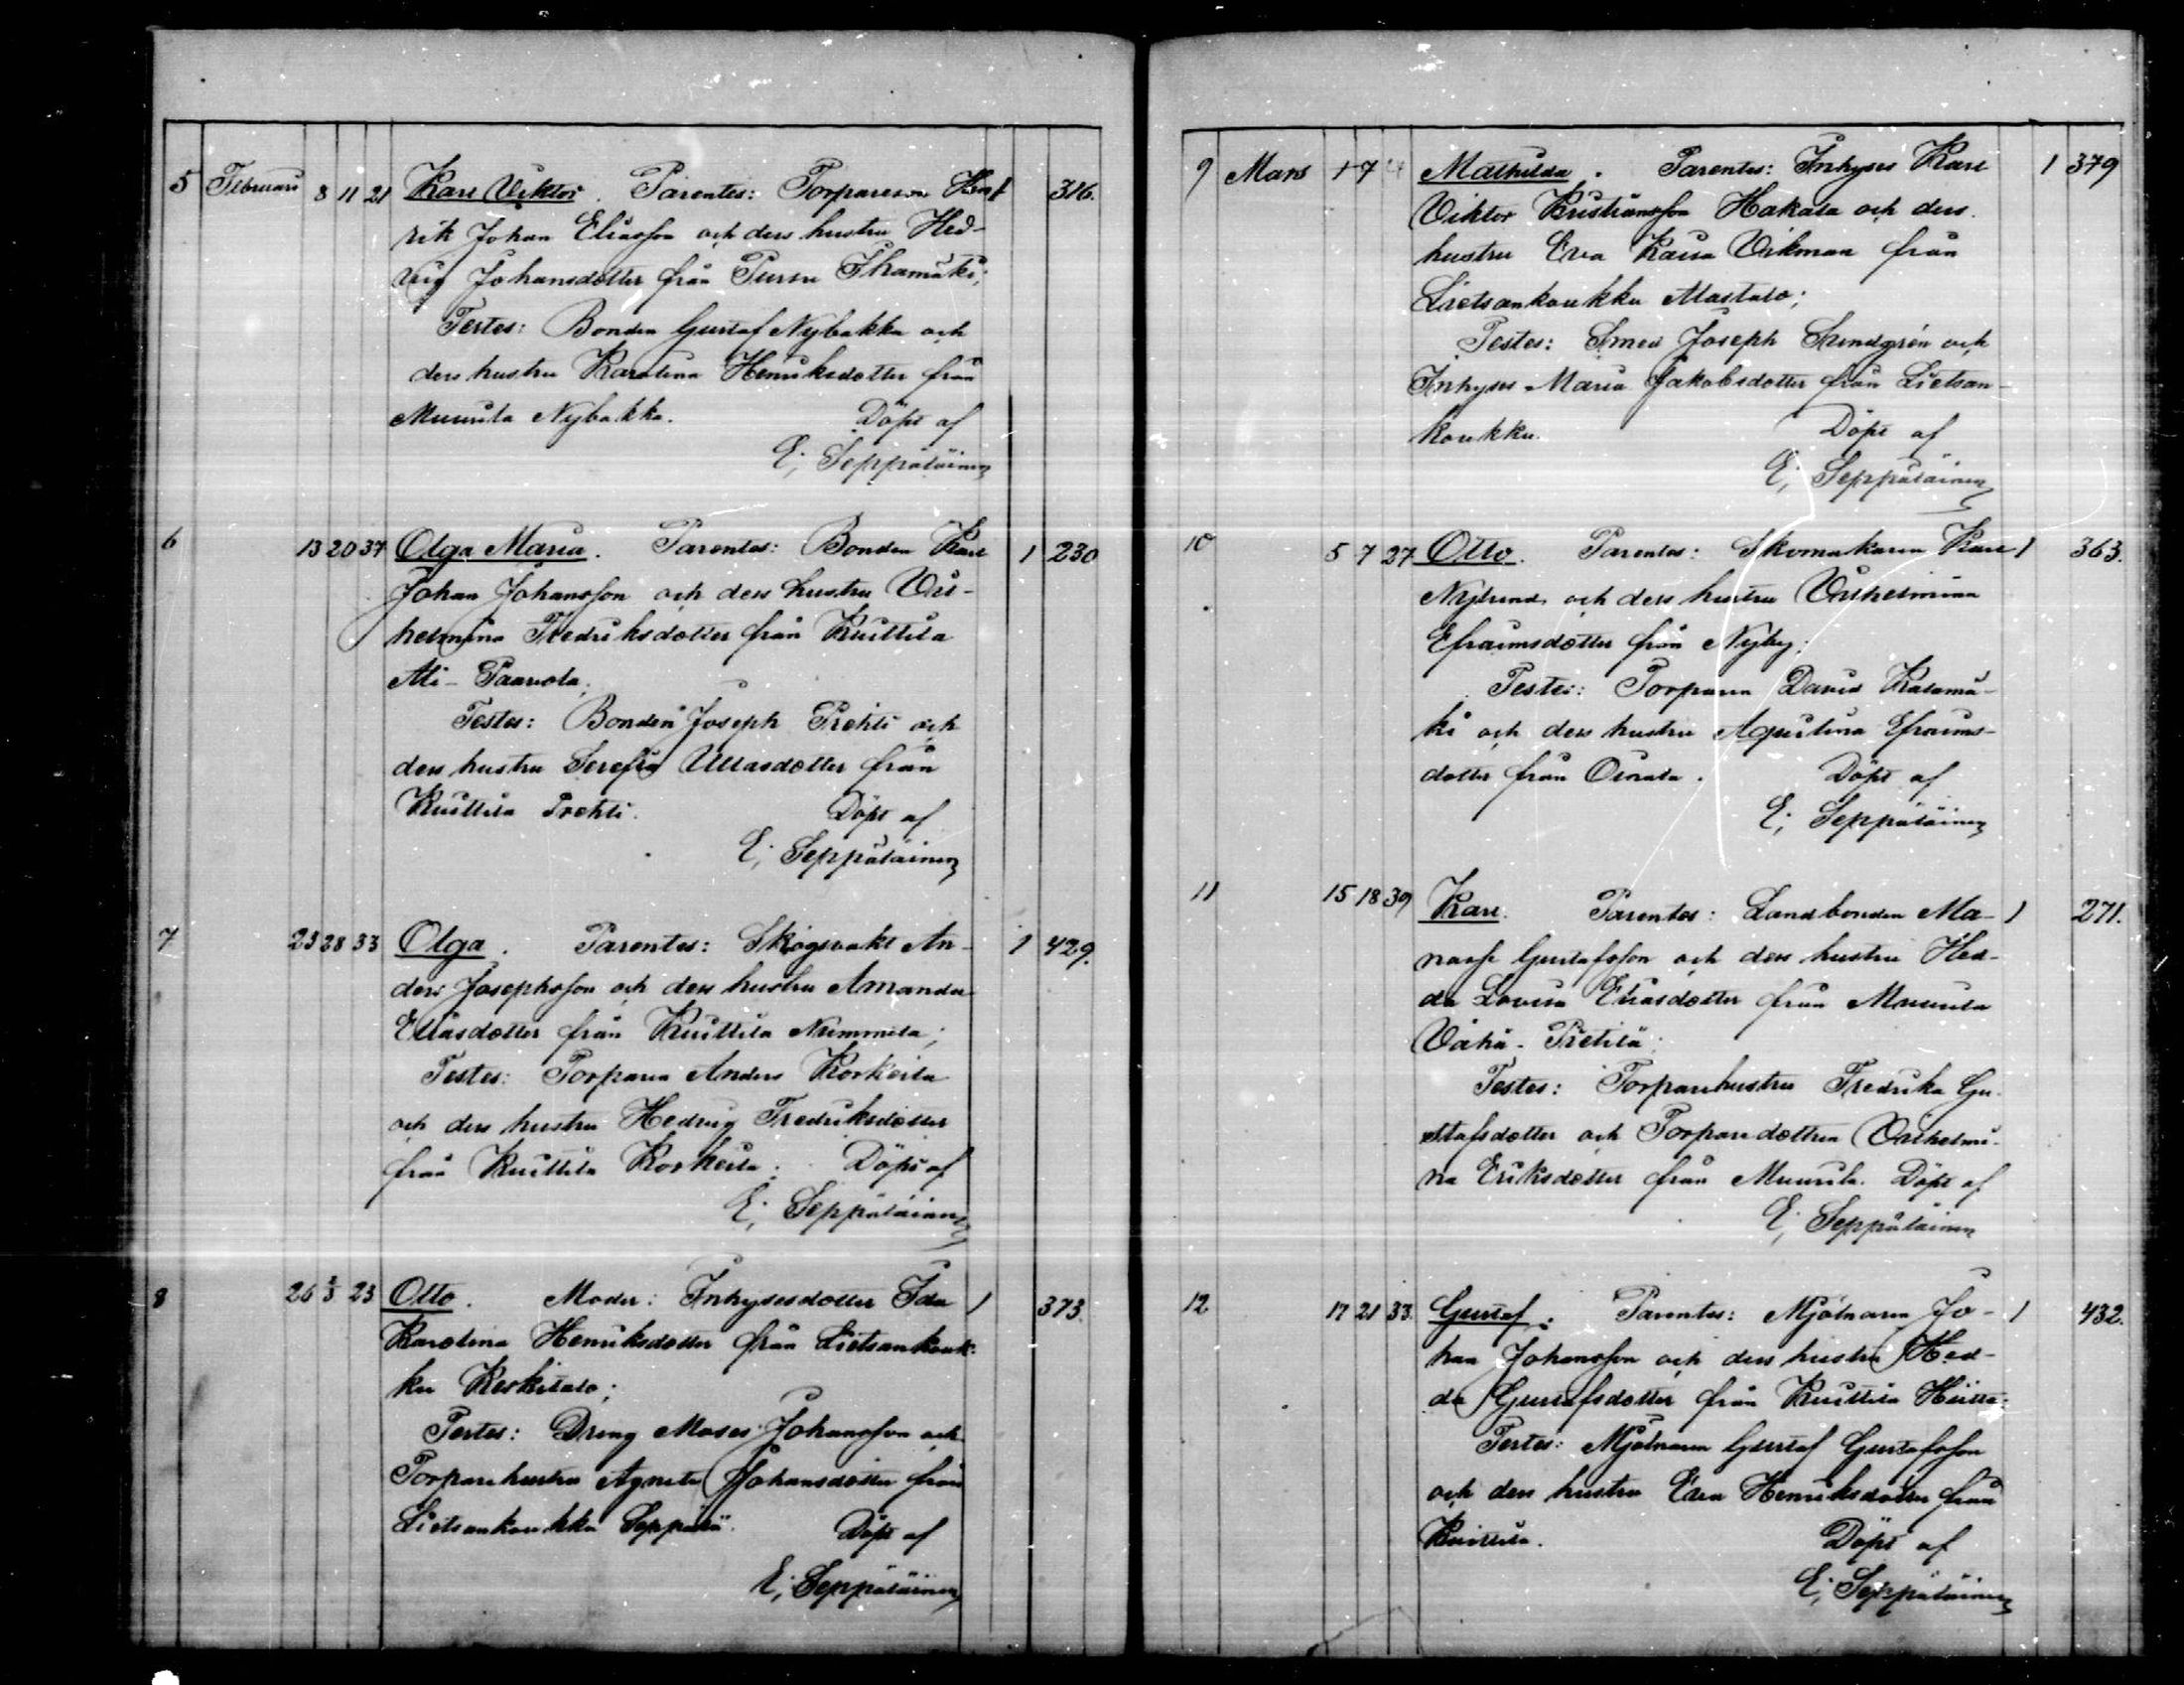 5 Februari 8 11 21 Karl Viktor. Parentes: Torpareson Hen- 1 316.
rik Johan Eliasson och dess hustru Hed-
vig Johansdotter från Pursu Ihamäki;
Testes: Bonden Gustaf Nybakka och
dess hustru Karolina Henriksdotter från
Muurila Nybakka. Döpt af
E; Seppäläinen
6 13 20 37 Olga Maria. Parentes: Bonden Karl 1 230
Johan Johansson och dess hustru Vil-
helmina Fredriksdotter från Kuittila
Ali-Paavola.
Testes: Bonden Joseph Prehti och
dess hustru Serefia Ullasdotter från
Kuittila Prehti. Döpt af
E; Seppäläinen
7 23 28 33 Olga. Parentes: Skogsvakt An- 1 429.
ders Josephsson och dess hustru Amanda
Eliasdotter från Kuittila Nummila;
Testes: Torparen Anders Korkeila
och dess hustru Hedvig Fredriksdotter
från Kuittila Korkeila. Döpt af
E; Seppäläinen
8 26 2/3 23 Otto. Moder: Inhysesdotter Ida 1 373.
Karolina Henriksdotter från Lietsankouk-
ku Keskitalo;
Testes: Dräng Moses Johansson och
Torparehustru Agneta Johansdotter från
Lietsankoukku Seppälä. Döpt af
E; Seppäläinen
9 Mars 1 7 Mathilda. Parentes: Inhyses Karl 1 379
Viktor Kristiansson Hakala och dess
hustru Eva Kaisa Vikman från
Lietsankoukku Mastalo;
Testes: Smed Joseph Lindgrén och
Inhyses Maria Jakobsdotter från Lietsan-
koukku. Döpt af
E; Seppäläinen
10 5 7 27 Otto. Parentes: Skomakaren Karl 1 363.
Nylund och dess hustru Vilhelmina
Efraimsdotter från Nyby;
Testes: Torparen David Kalamä-
ki och dess hustru Agustina Efraims-
dotter från Oinala. Döpt af
E; Seppäläinen
11 15 18 39 Karl. Parentes: Landbonden Ma- 1 271.
nasse Gustafsson och dess hustru Hed-
da Lovisa Eliasdotter från Muurila
Vähä-Pietilä;
Testes: Torparehustru Fredrika Gu-
stafsdotter och Torparedottren Vilhelmi-
na Eriksdotter från Muurila. Döpt af
E; Seppäläinen
12 17 21 33. Gustaf. Parentes: Mjölnaren Jo- 1 432.
han Johansson och dess hustru Hed-
da Gustafsdotter från Kuittila
Testes: Mjölnaren Gustaf Gustafsson
och dess hustru Eva Henriksdotter från
Kuittila. Döpt af
E; Seppäläinen